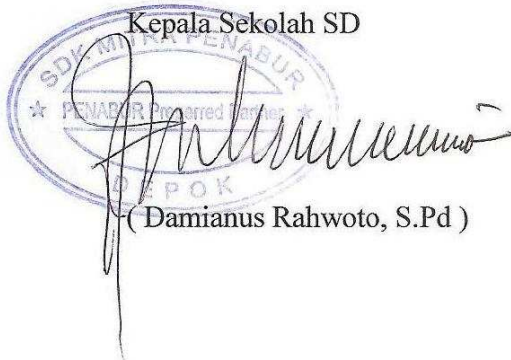 Kepala Sekolah SD
SDK MITRA PENABUR
PENABUR Preferred Partner
DEPOK
( Damianus Rahwoto, S.Pd )